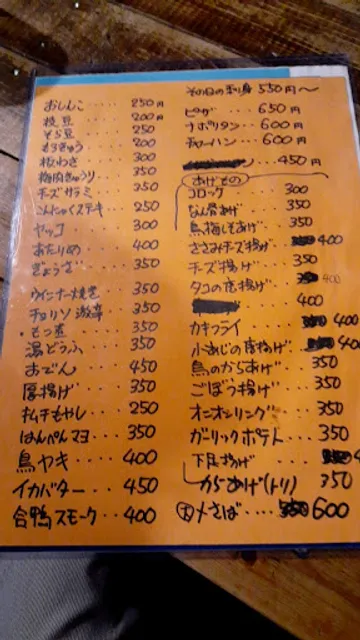 おしんこ ..... 250円
枝豆 ....... 200円
そら豆 ..... 250
もろきゅう ..... 200
板わさ ..... 300
梅肉きゅうり ... 350
チーズサラミ .... 350
こんにゃくステキ .. 250
ヤッコ ..... 300
あたりめ .... 400
ぎょうざ .... 350
ウインナー焼き .. 350
チョリソ激辛 . 350
・もつ煮 .... 350
湯どうふ ... 350
おでん .... 450
厚揚げ .... 350
キムチもやし .. 250
はんぺんマヨ .. 350
鳥ヤキ ... 400
イカバター ... 450
合鴨スモーク .. 400
その日の刺身 550円〜
ピザ ..... 650円
ナポリタン ... 600円
チャーハン .. 600円
.... 450円
あげもの
コロッケ ..... 300
なん骨あげ ..... 350
鳥梅しそあげ .. 350
ささみチーズ揚げ . 400
チーズ揚げ .... 350
タコの唐揚げ ... 400
.... 400
カキフライ .... 400
小あじの唐揚げ 400
鳥のからあげ .. 350
ごぼう揚げ ... 350
オニオンリング .. 350
ガーリックポテト . 350
下足揚げ ...
からあげ(トリ) 350
大 〆さば .... 600